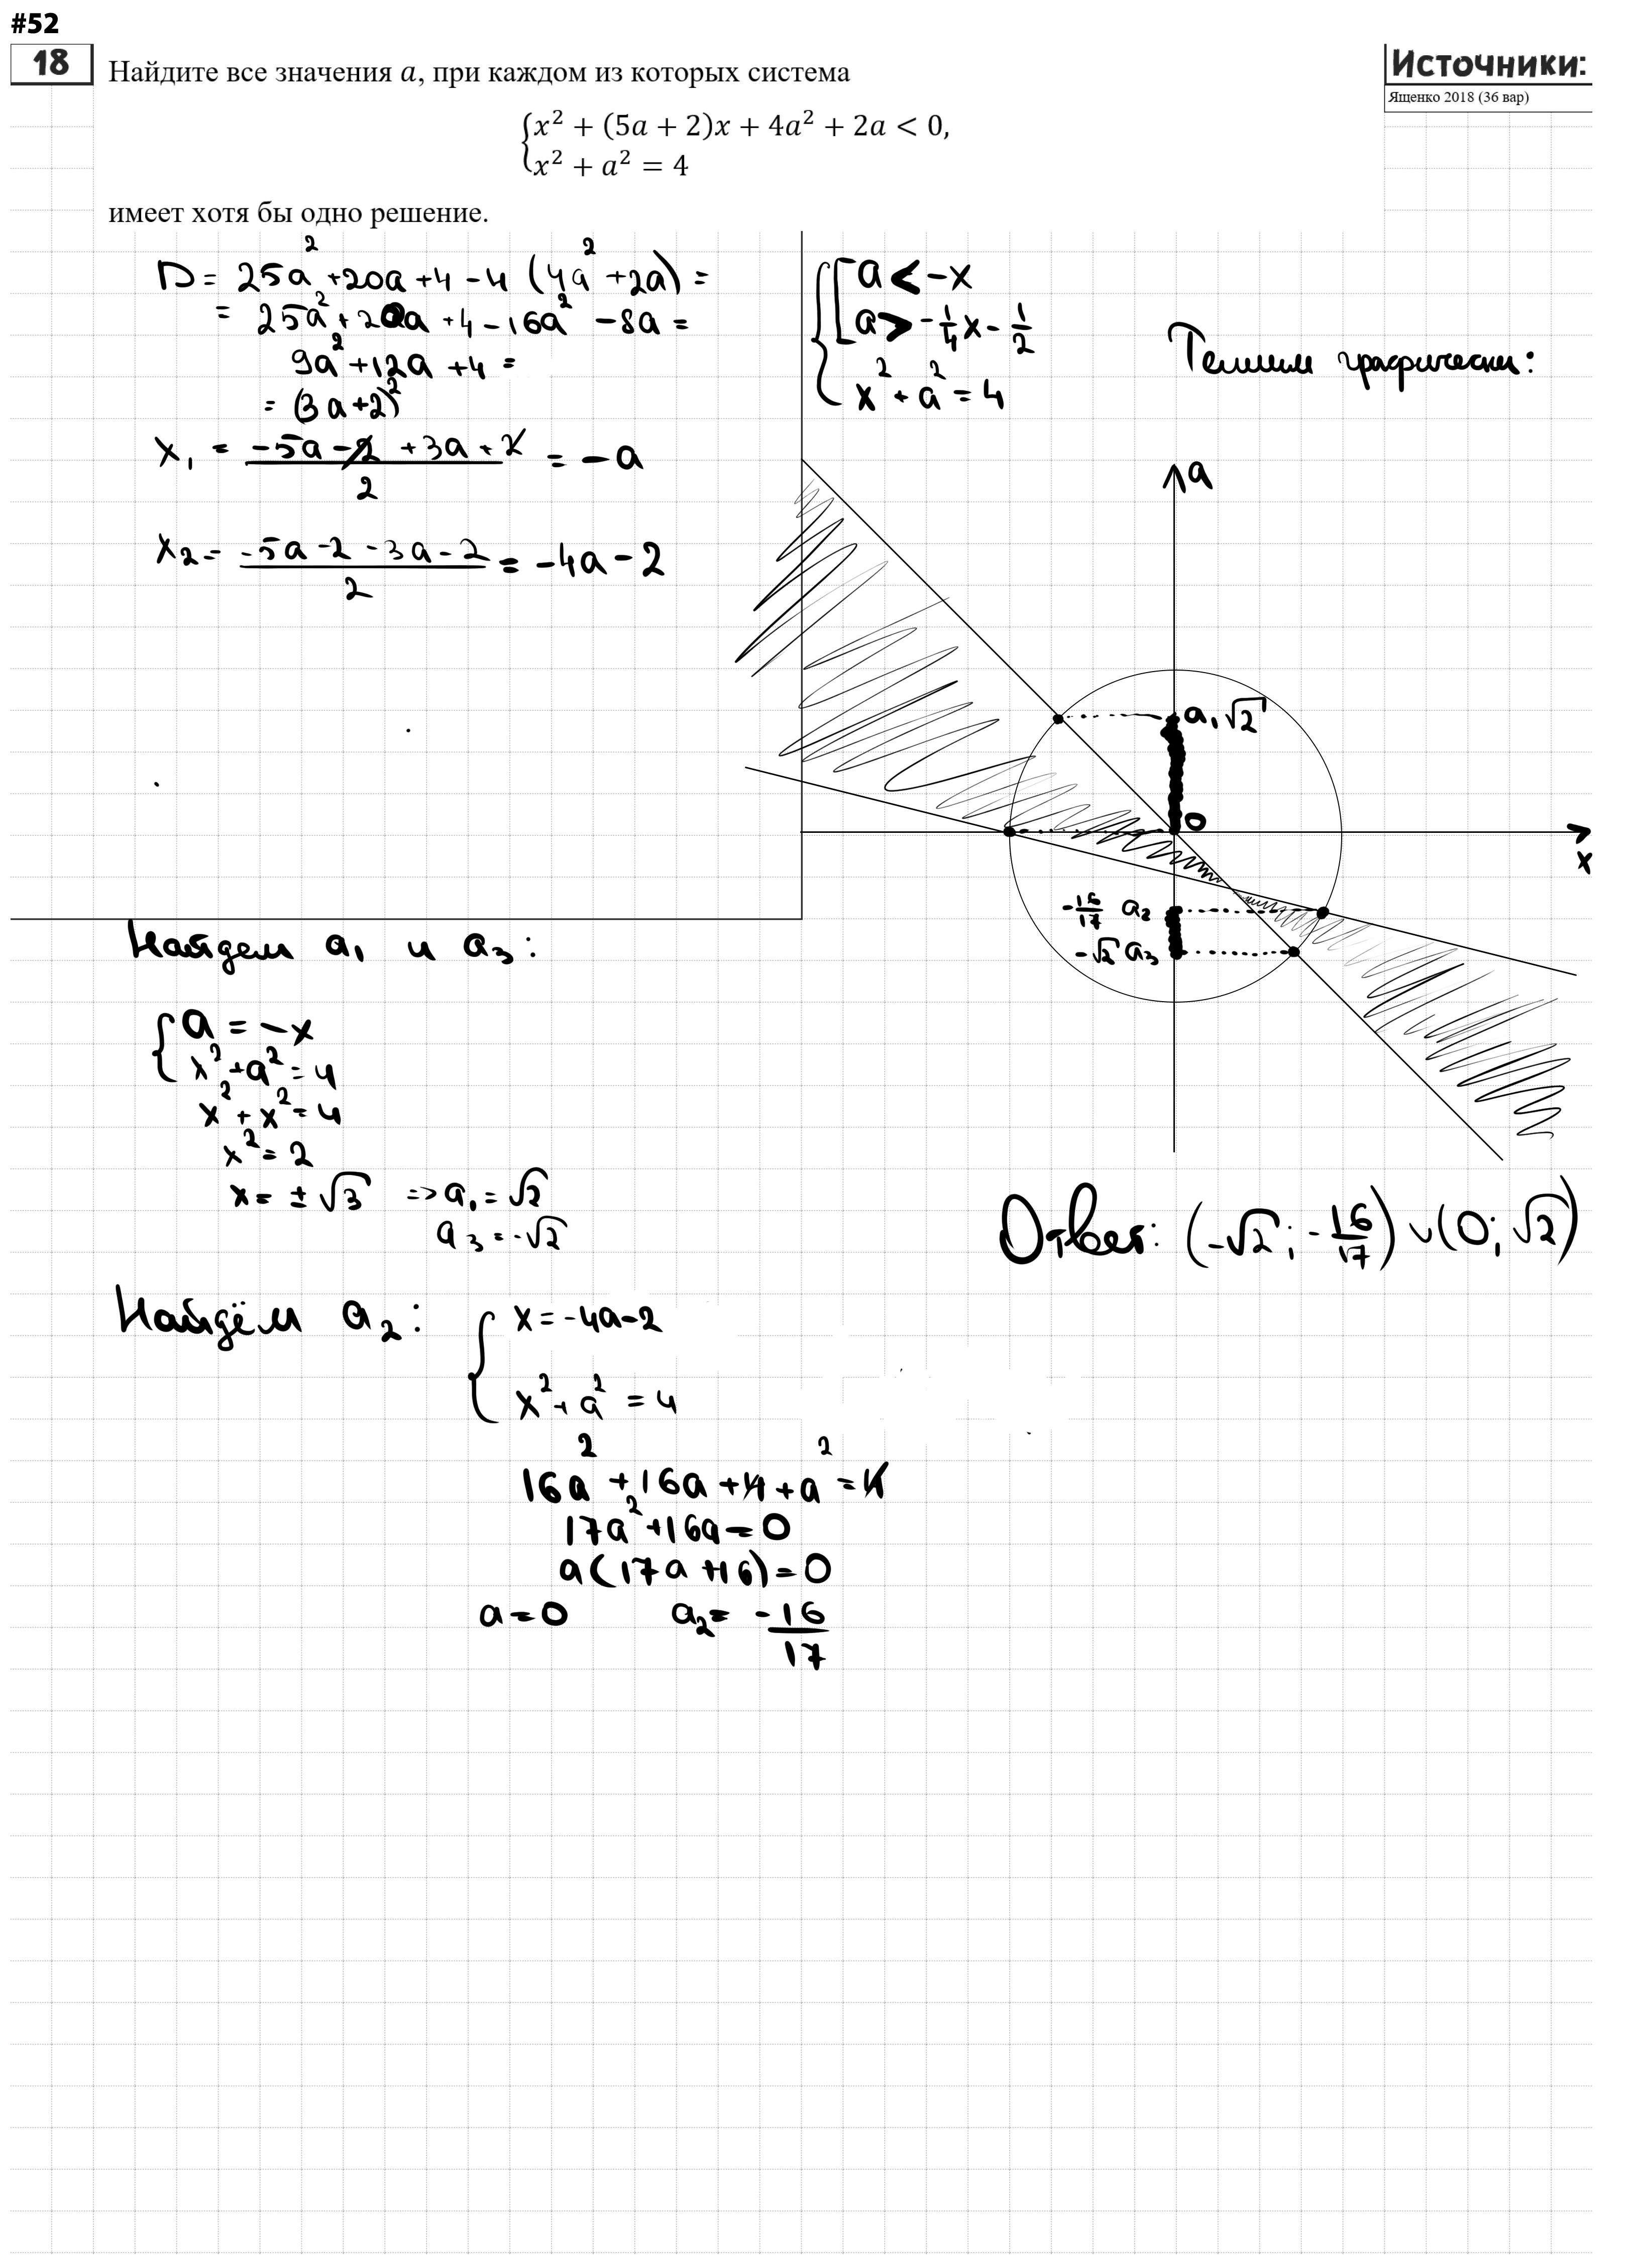 #52
18
Найдите все значения a, при каждом из которых система
Источники:
Ященко 2018 (36 вар)
{x² + (5a + 2)x + 4a² + 2a < 0,
x² + a² = 4
имеет хотя бы одно решение.
D = 25a² + 20a + 4 - 4 (4a² + 2a) =
= 25a² + 20a + 4 - 16a² - 8a =
9a² + 12a + 4 =
= (3a + 2)²
x₁ = (-5a - 2 + 3a + 2)/2 = -a
x₂ = (-5a - 2 - 3a - 2)/2 = -4a - 2
{[a < -x
a > -1/4 x - 1/2
x² + a² = 4
графически:
a
a₁ √2
0
x
-16/17 a₂
-√2 a₃
Найдем a₁ и a₃:
{a = -x
x² + a² = 4
x² + x² = 4
x² = 2
x = ± √3 => a₁ = √2
a₃ = -√2
Ответ: (-√2; -16/17) ∪ (0; √2)
Найдём a₂: {x = -4a - 2
x² + a² = 4
16a² + 16a + 4 + a² = 4
17a² + 16a = 0
a(17a + 16) = 0
a = 0 a₂ = -16/17